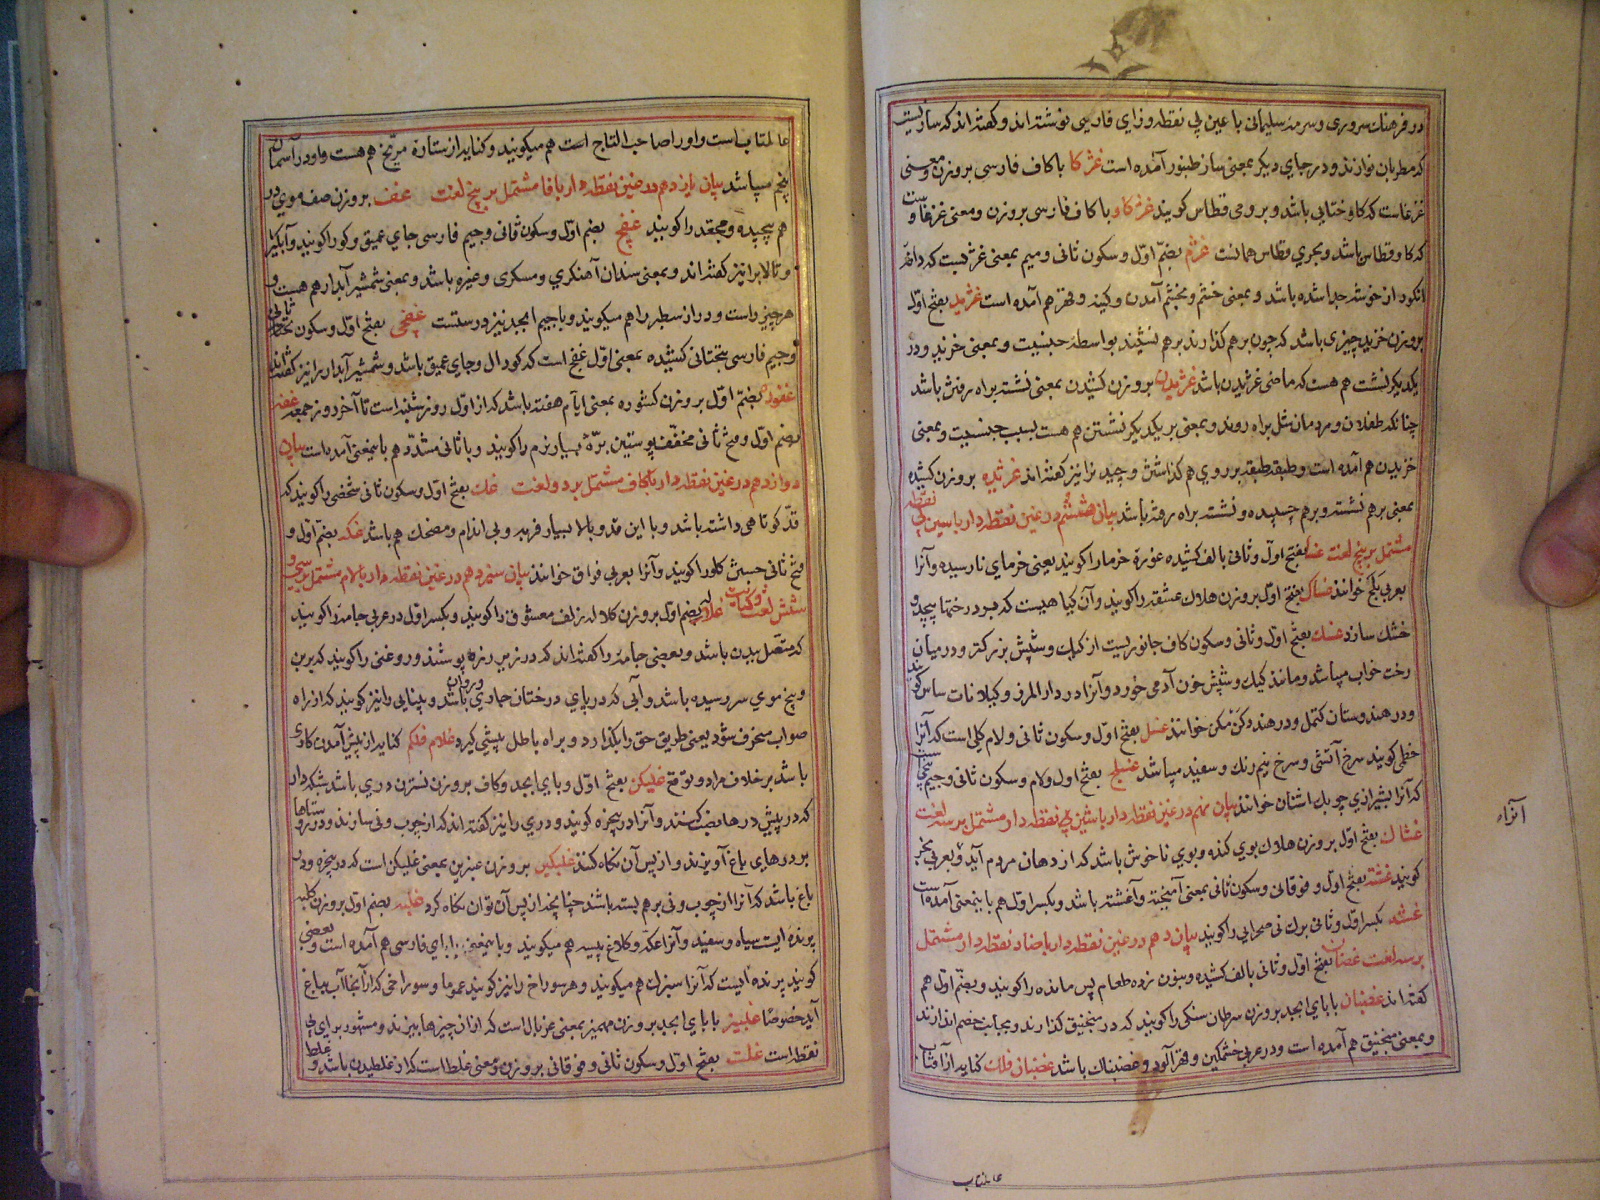 در فرهنگ سروری و سرمه سلیمانی با عین بی نقطه و زای فارسی نوشته‌اند و گفته‌اند که سازیست
که مطربان نوازند و در جای دیگر بمعنی ساز طنبور آمده است غژکا با کاف فارسی بر وزن و معنی
غژغاست که گاو ختایی باشد و برومی قطاس گویند غژکاو با کاف فارسی بر وزن و معنی غژغاوست
که گاو قطاس باشد و بحری قطاس همانست غژم بضم اول و سکون ثانی و میم بمعنی غژبست که دانه
انگور از خوشه جدا شده باشد و بمعنی خشم و بخشم آمدن و کینه و قهر هم آمده است غژید بفتح اول
بر وزن خرید چیزی باشد که چون بر هم گذارند بر هم نشیند بواسطه جنسیت و بمعنی خزید و در
یکدیگر نشست هم هست که ماضی غژیدن باشد غژیدن بر وزن کشیدن بمعنی نشسته براه رفتن باشد
چنانکه طفلان و مردمان شل براه روند و بمعنی بر یکدیگر نشستن هم هست بسبب جنسیت و بمعنی
خزیدن هم آمده است و طبقه طبقه بر روی هم گذاشتن و چیدن را نیز گفته‌اند غژیده بر وزن کشیده
بمعنی بر هم نشسته و بر هم چسپیده و نشسته براه رفته باشد بیان هشتم در غین نقطه دار با سین بی نقطه
مشتمل بر پنج لغت غسا بفتح اول و ثانی بالف کشیده غوره خرما را گویند یعنی خرمای نارسیده و آنرا
بعربی بلح خوانند غساک بفتح اول بر وزن هلاک عشقه را گویند و آن گیاهیست که بر درختها پیچد و
خشک سازد غسک بفتح اول و ثانی و سکون کاف جانوریست از کیک و شپش بزرگتر و در میان
رخت خواب میباشد و مانند کیک و شپش خون آدمی خورد و آنرا در دار المرز و گیلانات ساس گویند
و در هندوستان کتمل و در هند و دکن مکن خوانند غسل بفتح اول و سکون ثانی و لام گلی است که آنرا
خطمی گویند سرخ آتشی و سرخ نیم رنگ و سفید میباشد غسلج بفتح اول و لام و سکون ثانی و جیم
که آنرا بشیرازی چوبک اشنان خوانند بیان نهم در غین نقطه دار با شین نقطه دار مشتمل بر سه لغت
غشاک بفتح اول بر وزن هلاک بوی گنده و بوی ناخوش باشد که از دهان مردم آید و بعربی بخر
گویند غشته بفتح اول و فوقانی و سکون ثانی بمعنی آمیخته و آغشته باشد و بکسر اول هم باینمعنی آمده است
غشه بکسر اول و ثانی برک نی صحرایی را گویند بیان دهم در غین نقطه دار با ضاد نقطه دار مشتمل
بر سه لغت غضان بفتح اول و ثانی بالف کشیده و بنون زده طعام پس مانده را گویند و بضم اول هم
گفته‌اند غضبان با بای ابجد بر وزن سرطان سنگی را گویند که در منجنیق گذارند و بجانب خصم اندازند
و بمعنی منجنیق هم آمده است و در عربی خشمگین و قهرآلود و غضبناک باشد غضبان فلک کنایه از آفتاب
آنراء
عالمتاب
عالمتاب است و او را صاحب التاج است هم میگویند و کنایه از ستاره مریخ هم هست و او در آسمان
پنجم میباشد بیان یازدهم در غین نقطه دار با فا مشتمل بر پنج لغت غف بر وزن صف موی در
هم پیچیده و مجعد را گویند غفج بضم اول و سکون ثانی و جیم فارسی جای عمیق و گو را گویند و آبگیر
و تالاب را نیز گفته‌اند و بمعنی سندان آهنگری و مسگری و غیره باشد و بمعنی شمشیر آبدار هم هست و
هر چیز راست و دراز سطبر را هم میگویند و با جیم ابجد نیز درستست غفجی بفتح اول و سکون ثانی
و جیم فارسی بتحتانی کشیده بمعنی اول غفج است که گودال و جای عمیق باشد و شمشیر آبدار را نیز گفته‌اند
غفوده بضم اول بر وزن گشوده بمعنی ایام هفته باشد که از اول روز شنبه است تا آخر روز جمعه غفه
بضم اول و فتح ثانی مخفف پوستین بره بسیار نرم را گویند و با ثانی مشدد هم باینمعنی آمده است بیان
دوازدهم در غین نقطه دار با کاف مشتمل بر دو لغت غک بفتح اول و سکون ثانی شخصی را گویند که
قد کوتاهی داشته باشد و با این قد و بالا بسیار فربه و بی اندام و مضحک هم باشد غکه بضم اول و
فتح ثانی جستن گلو را گویند و آنرا بعربی فواق خوانند بیان سیزدهم در غین نقطه دار با لام مشتمل بر سی و
شش لغت و کنایت غلاله بضم اول بر وزن کلاله زلف معشوق را گویند و بکسر اول در عربی جامه را گویند
که متصل ببدن باشد و بعضی جامه را گفته‌اند که در زیر زره پوشند و روغنی را گویند که بر بن
و بیخ موی سر رسیده باشد و آبی که در پای درختان جاری و روان باشد و پنهانی را نیز گویند که از راه
صواب منحرف شود یعنی طریق حق را بگذارد و براه باطل پیشی گیرد غلام فلکم کنایه از پیش آمدن کاری
باشد بر خلاف مراد و توقع غلبکن بفتح اول و بای ابجد و کاف بر وزن نسترن دری باشد شبکه دار
که در پیش در ها نصب کنند و آنرا در پنجره گویند و دری را نیز گفته‌اند که از چوب و نی سازند و در روستاها
بر درهای باغ آویزند و از پس آن نگاه کنند غلبکین بر وزن عنبرین بمعنی غلبکن است که در پنجره و در
باغ باشد که آنرا از چوب و نی بر هم بسته باشند چنانچه از پس آن توان نگاه کرد غلبه بضم اول بر وزن کلبه
پرنده ایست سیاه و سفید و آنرا عکه و کلاغ پیسه هم میگویند و باینمعنی با بای فارسی هم آمده است و بعضی
گویند پرنده ایست که آنرا سبزک هم میگویند و هر سوراخ را نیز گویند عموما و سوراخی که از آنجا آب بباغ
آید خصوصا غلبیز با بای ابجد بر وزن مهمیز بمعنی غربال است که از آن چیزها بیزند و مشهور برای بی
نقطه است غلت بفتح اول و سکون ثانی و فوقانی بر وزن و معنی غلط است که از غلطیدن باشد و غلط